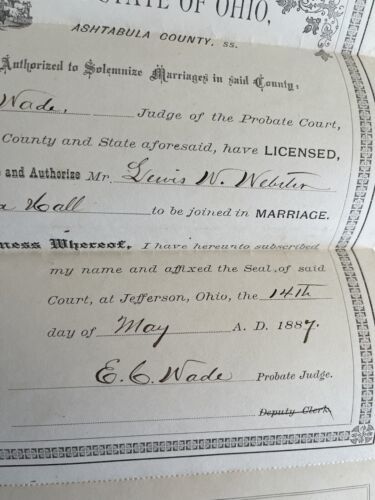 STATE OF OHIO,
ASHTABULA COUNTY, ss.
Authorized to Solemnize Marriages in said County:
Wade, Judge of the Probate Court,
County and State aforesaid, have LICENSED,
and Authorize Mr. Lewis W. Webster
Hall to be joined in MARRIAGE.
Whereof, I have hereunto subscribed
my name and affixed the Seal of said
Court, at Jefferson, Ohio, the 14th
day of May A. D. 1887.
E. C. Wade Probate Judge.
Deputy Clerk